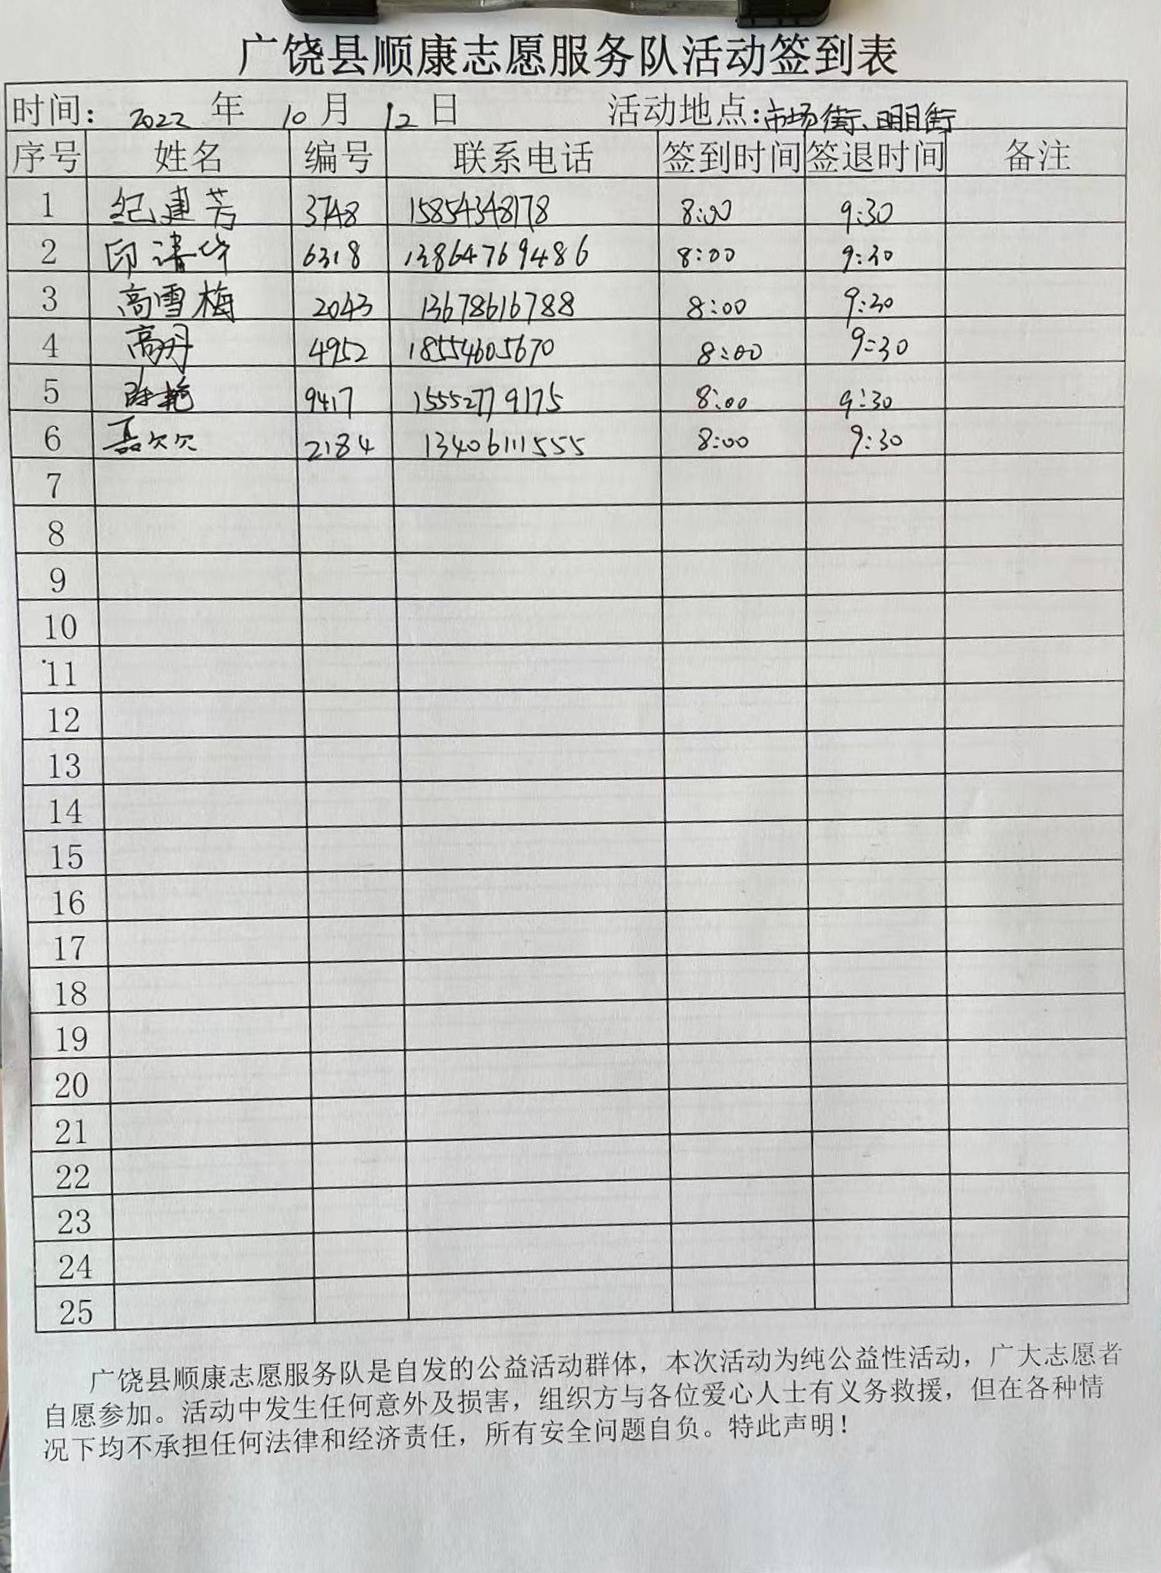 广饶县顺康志愿服务队活动签到表
时间: 2022 年 10 月 12 日 活动地点:市场街、明月街
序号 姓名 编号 联系电话 签到时间 签退时间 备注
1 纪建芳 3748 15854348178 8:00 9:30
2 印清华 6318 13864769486 8:00 9:30
3 高雪梅 2043 13678616788 8:00 9:30
4 高丹 4952 18554605670 8:00 9:30
5 陈艳 9417 15552779175 8:00 9:30
6 聂欠欠 2184 13406111555 8:00 9:30
7
8
9
10
11
12
13
14
15
16
17
18
19
20
21
22
23
24
25
广饶县顺康志愿服务队是自发的公益活动群体，本次活动为纯公益性活动，广大志愿者
自愿参加。活动中发生任何意外及损害，组织方与各位爱心人士有义务救援，但在各种情
况下均不承担任何法律和经济责任，所有安全问题自负。特此声明！